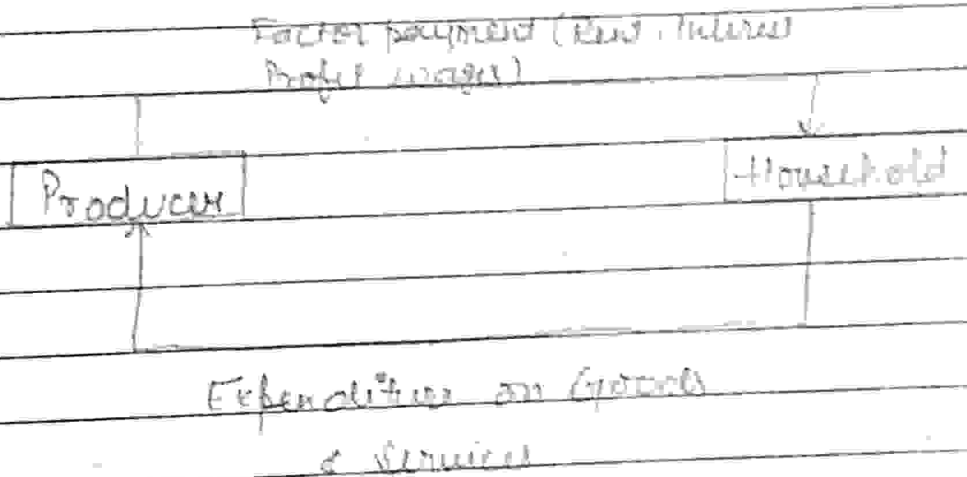 Factor payment (Rent, Interest
Profit wages)
Producer
Household
Expenditure on Goods
& Services